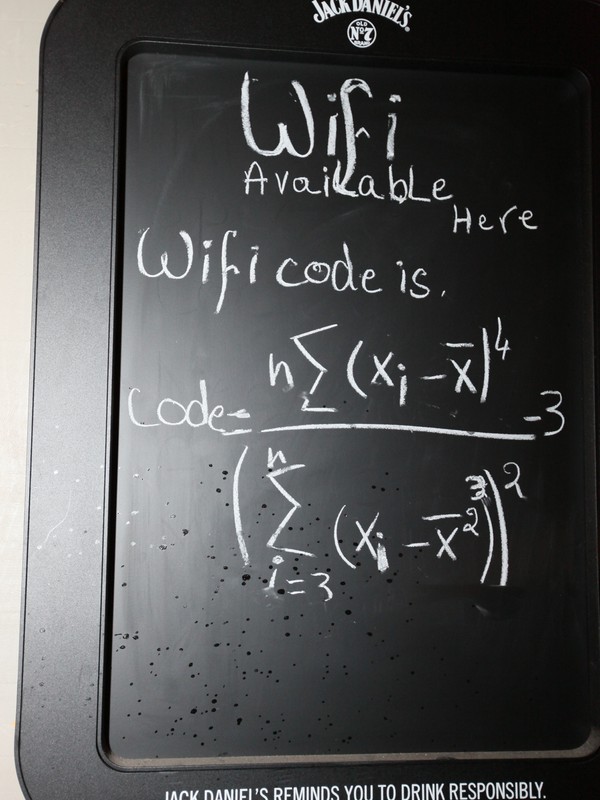 JACK DANIEL'S
OLD
Nº7
BRAND
Wifi
Available
Here
Wifi code is.
Code = n∑(xi - x̄)⁴ / (∑ⁿi=3 (xi - x̄²)³)² - 3
JACK DANIEL'S REMINDS YOU TO DRINK RESPONSIBLY.